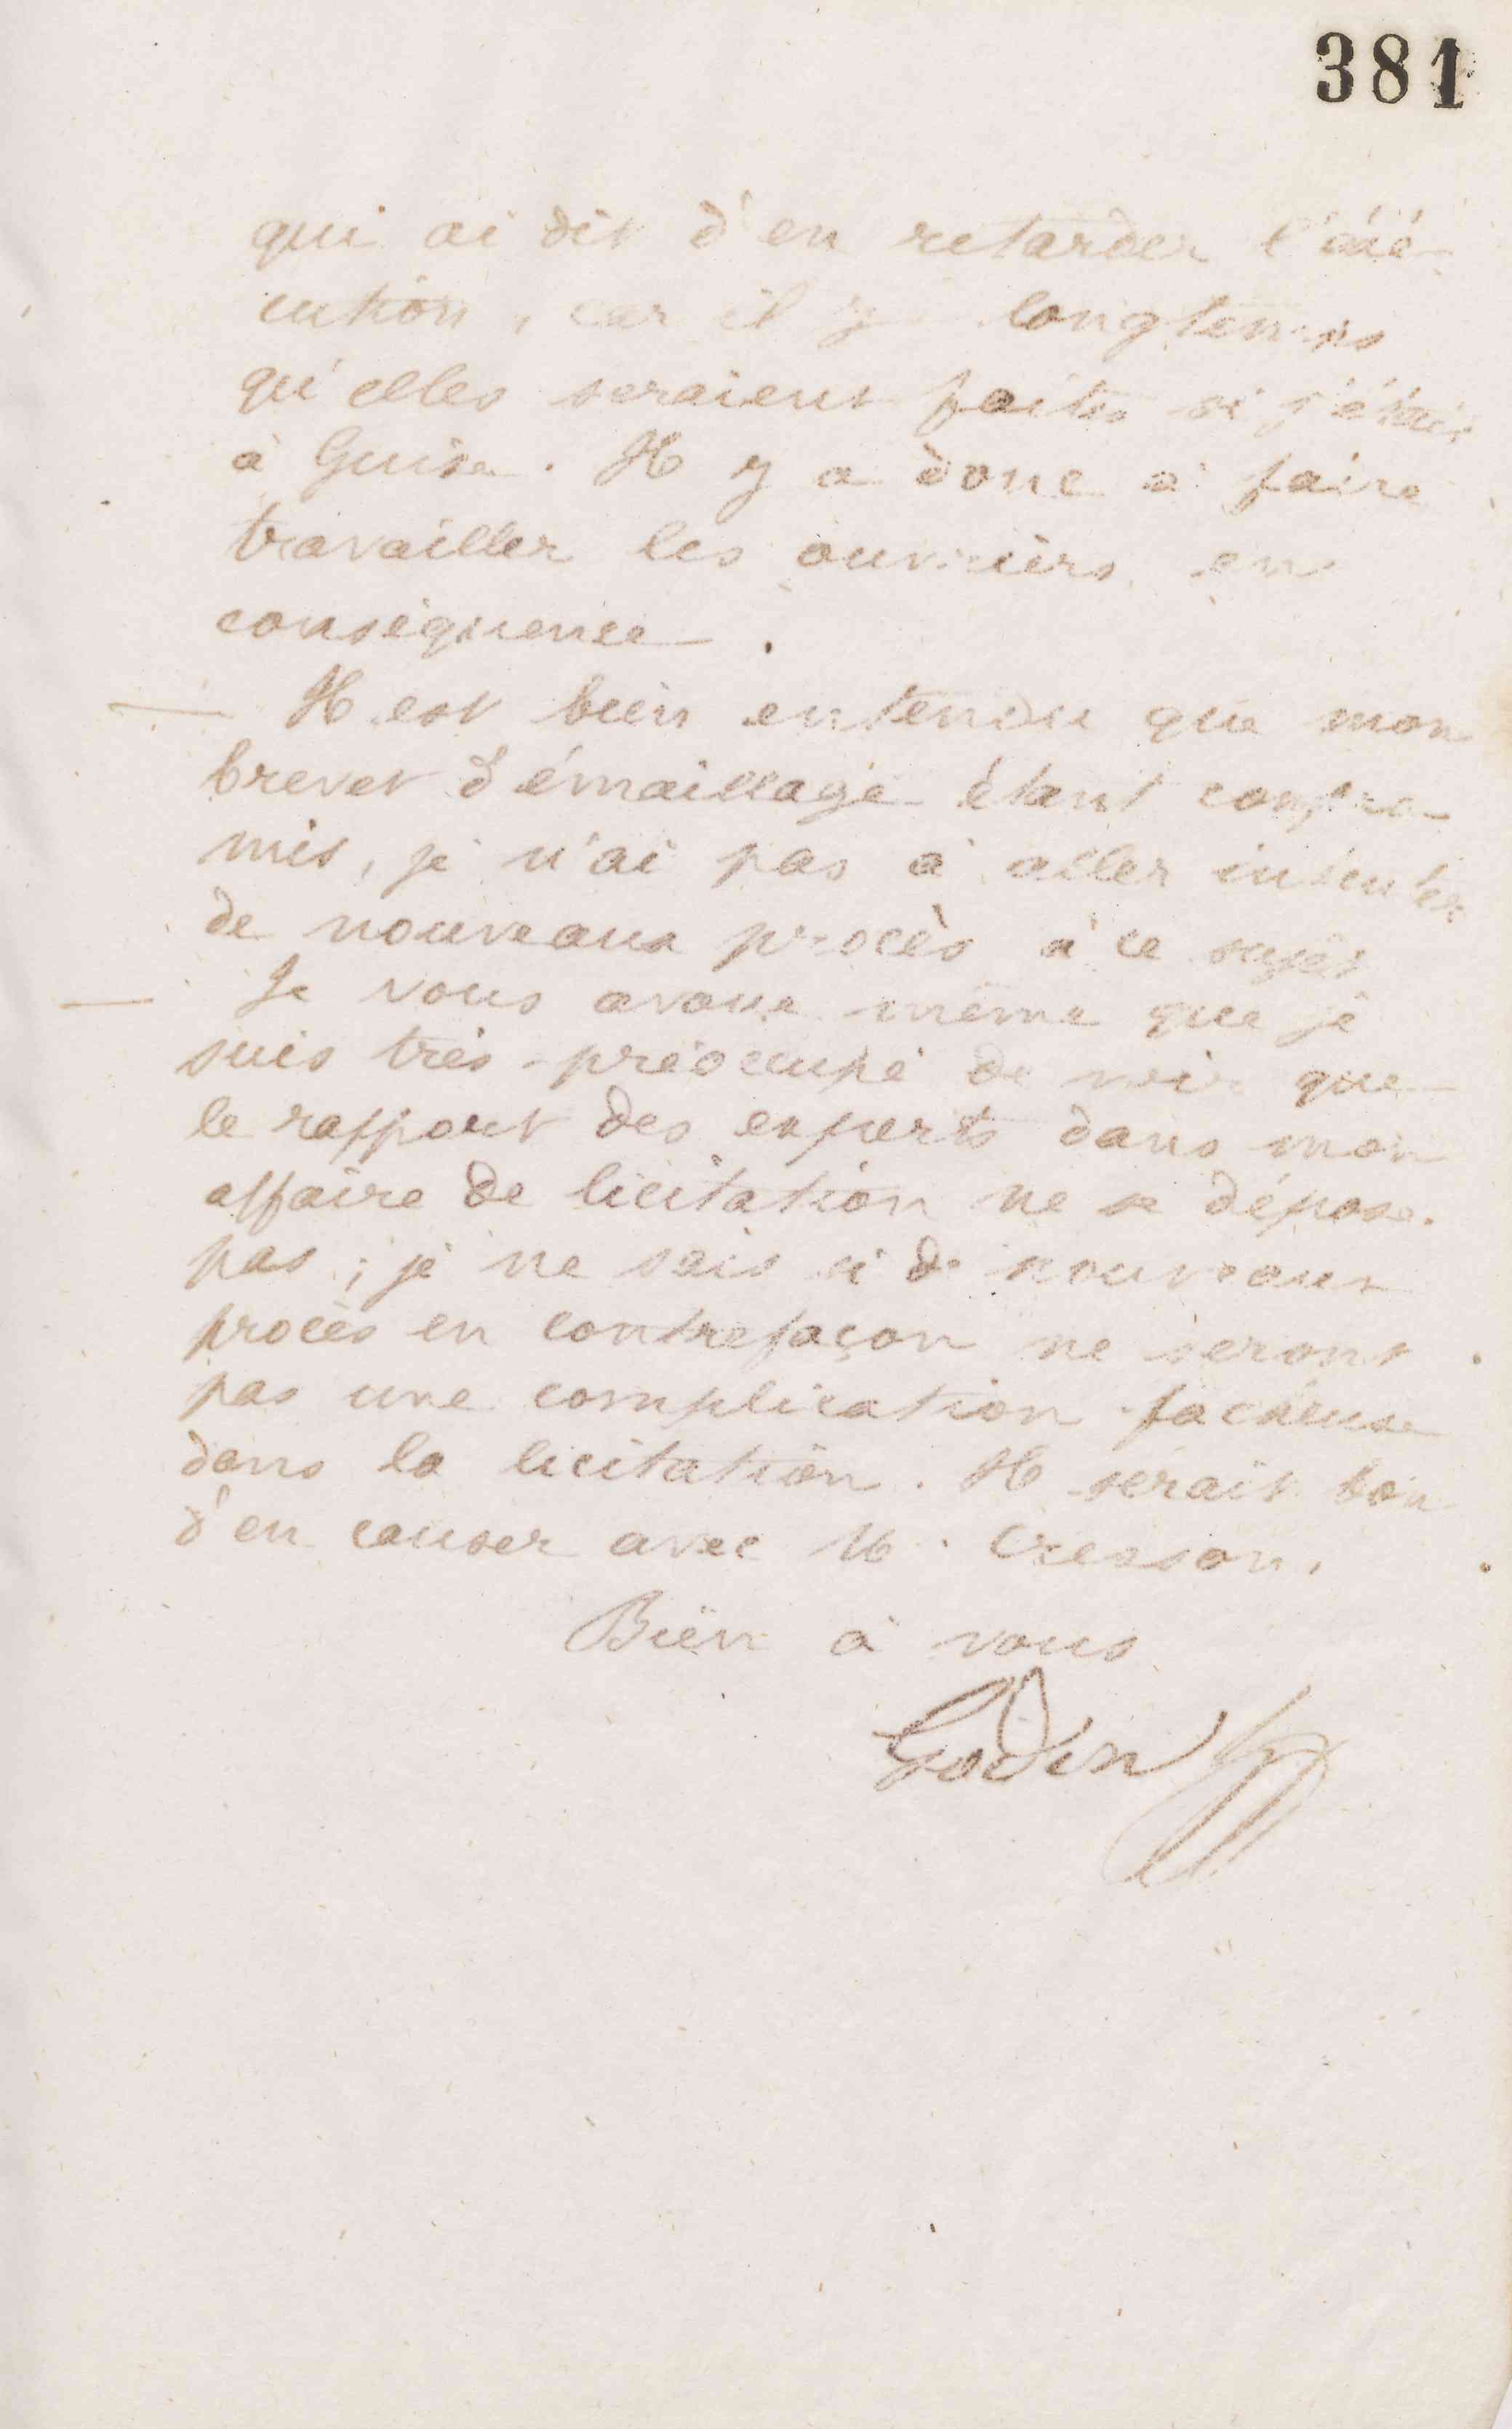 381
qui ai dit d'en retarder l'exé-
cution, car il y longtemps
qu'elles seraient faites si j'étais
à Guise. Il y a donc à faire
travailler les ouvriers en
conséquence.
— Il est bien entendu que mon
brevet d'émaillage étant compro-
mis, je n'ai pas à aller intenter
de nouveaux procès à ce sujet
— Je vous avoue même que je
suis très-préoccupé de voir que
le rapport des experts dans mon
affaire de licitation ne se dépose
pas ; je ne sais si de nouveaux
procès en contrefaçon ne seront
pas une complication facheuse
dans la licitation. Il serait bon
d'en causer avec M. Cresson.
Bien à vous
Godin